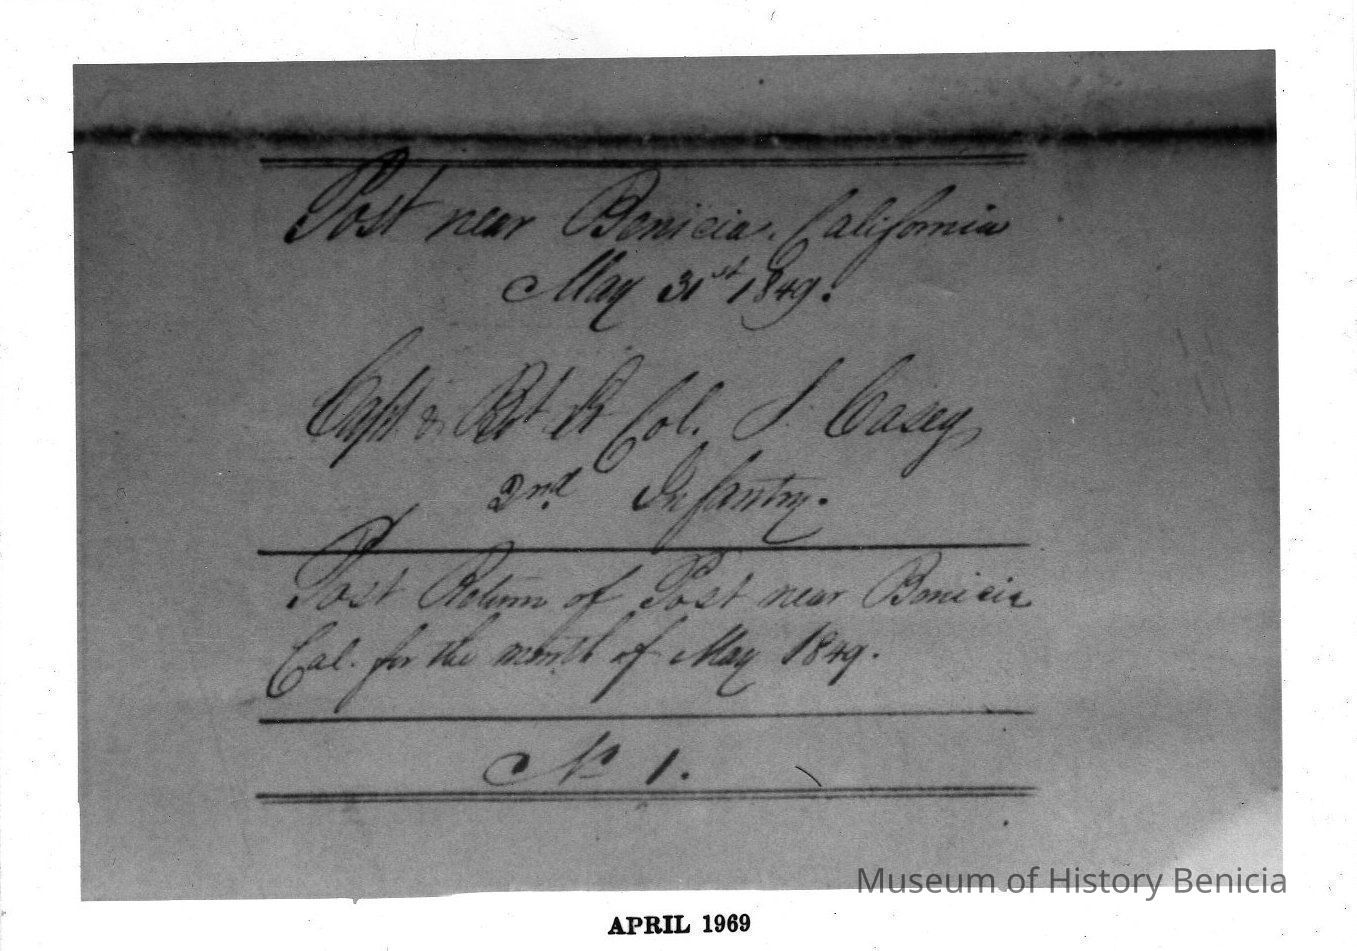 Post near Benicia, California
May 31st 1849.
Capt & Bvt Lt Col. S. Casey,
2nd Infantry.
Post Return of Post near Benicia
Cal. for the month of May 1849.
No 1.
Museum of History Benicia
APRIL 1969